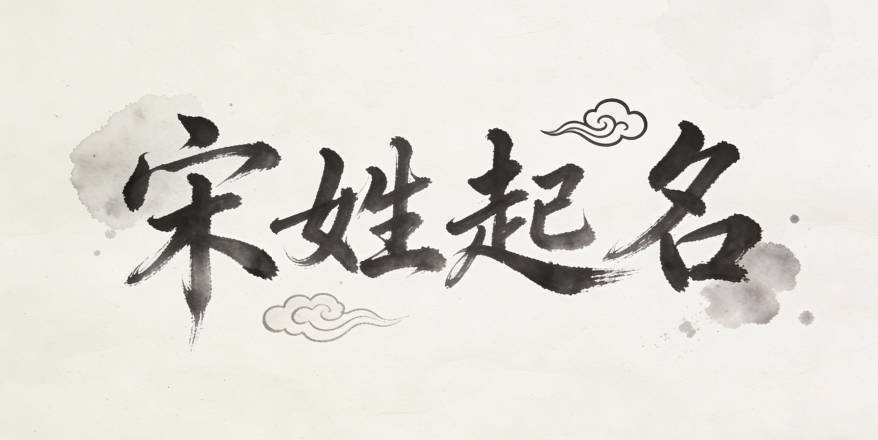 宋姓起名